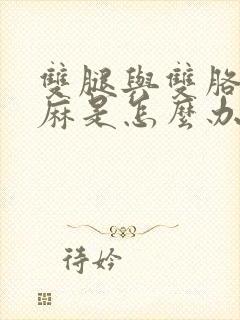 雙腿與雙胳
麻是怎麼办
待妗